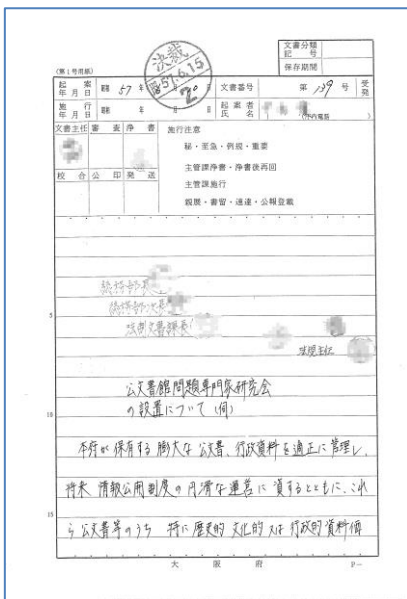 文書分類
記号
保存期間
(第1号用紙)
決裁
57.6.15
2
起案
年月日
昭和 57 年 月 日
文書番号
第 139 号
受発
施行
年月日
昭和 年 月 日
起案者
氏名
文書主任 審査 浄書
校合 公印 発送
施行注意
秘・至急・例規・重要
主管課浄書・浄書後再回
主管課施行
親展・書留・速達・公報登載
総務部長
総務部次長
法制文書課長
法規主任
5
公文書館問題専門家研究会
の設置について(伺)
10
本府が保有する膨大な公文書、行政資料を適正に管理し、
将来 情報公開制度の円滑な運営に資するとともに、これ
15
ら公文書等のうち 特に歴史的 文化的 又は行政的資料価
大阪府
P—